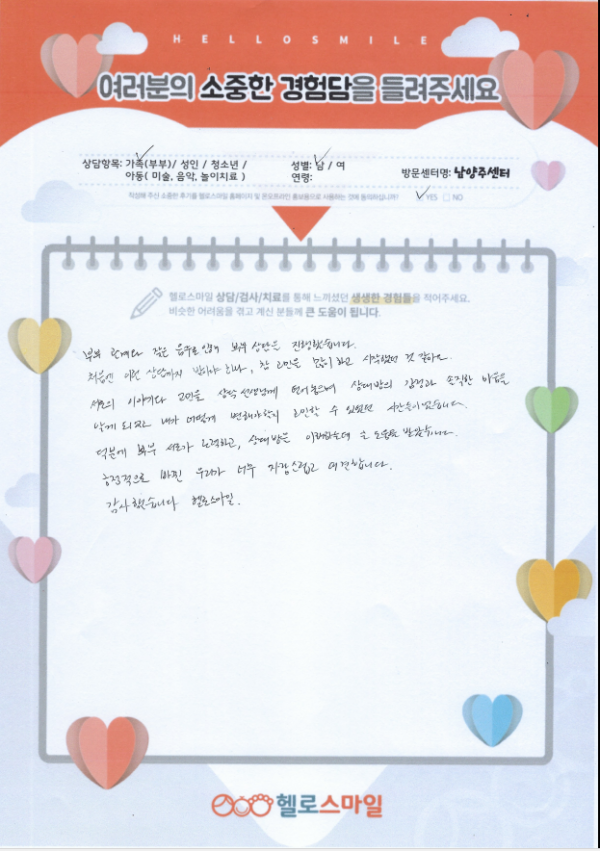 HELLOSMILE
여러분의 소중한 경험담을 들려주세요
상담항목: 가족(부부)/ 성인 / 청소년 /
아동( 미술, 음악, 놀이치료 )
성별: 남 / 여
연령:
방문센터명: 남양주센터
작성해 주신 소중한 후기를 헬로스마일 홈페이지 및 온오프라인 홍보용으로 사용하는 것에 동의하십니까? YES NO
헬로스마일 상담/검사/치료를 통해 느끼셨던 생생한 경험들을 적어주세요.
비슷한 어려움을 겪고 계신 분들께 큰 도움이 됩니다.
부부 관계와 잦은 음주로 인해 부부 상담을 진행했습니다.
처음엔 이런 상담까지 받아야 하나, 참 고민을 많이 하고 시작했던 것 같아요.
서로의 이야기와 고민을 상담 선생님께 털어놓으며 상대방의 감정과 솔직한 마음을
알게 되었고 내가 어떻게 변해야할지 고민할 수 있었던 시간이었습니다.
덕분에 부부 서로가 노력하고, 상대방을 이해하는데 큰 도움을 받았습니다.
긍정적으로 바뀐 우리가 너무 자랑스럽고 대견합니다.
감사했습니다 헬로스마일.
헬로스마일